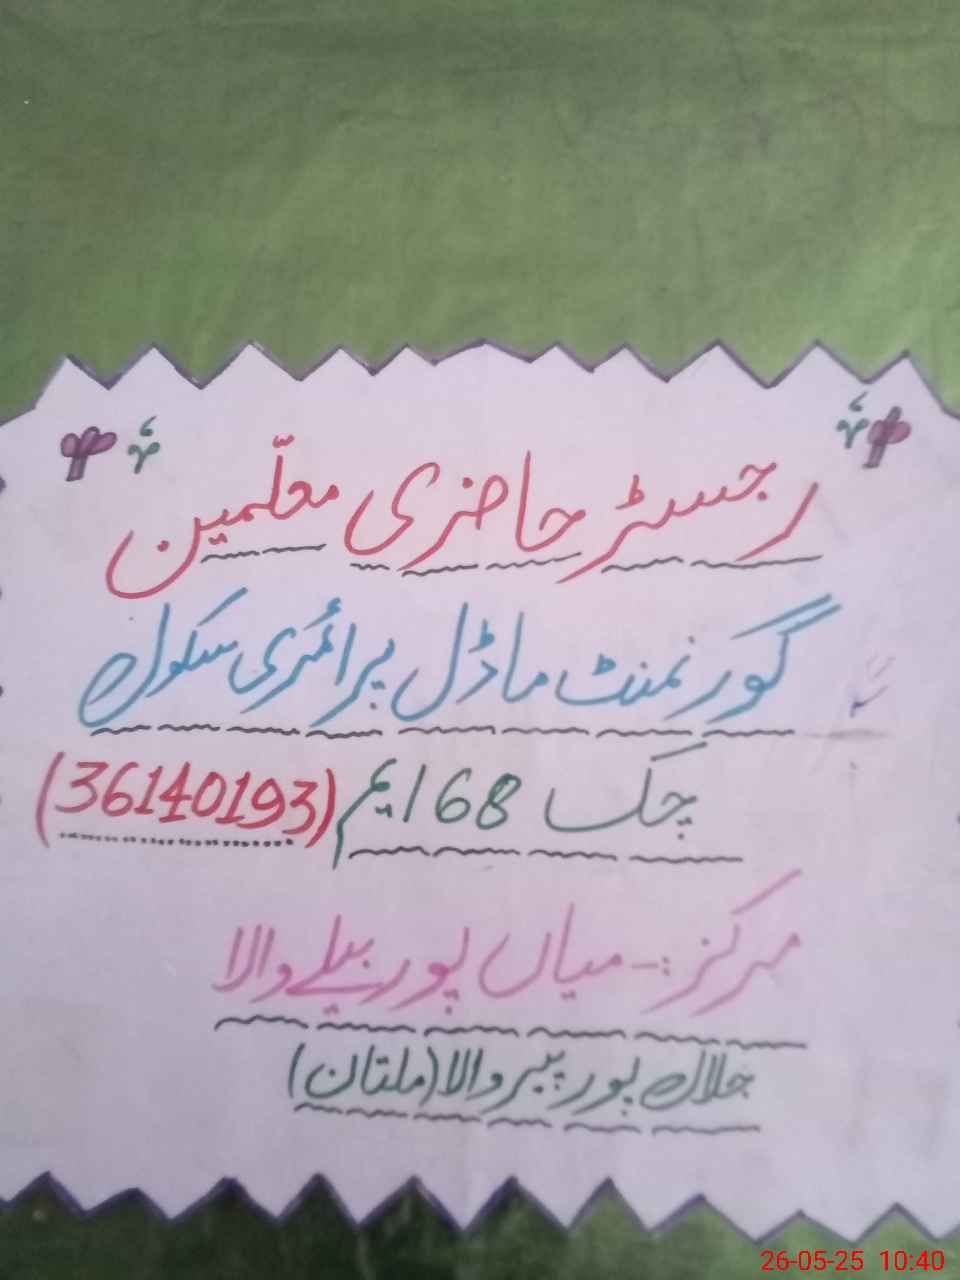 رجسٹر حاضری معلّمین
گورنمنٹ ماڈل پرائمری سکول
چک 168 ایم (36140193)
مرکز:- میاں پور بیلے والا
جلال پور پیر والا (ملتان)
26-05-25 10:40